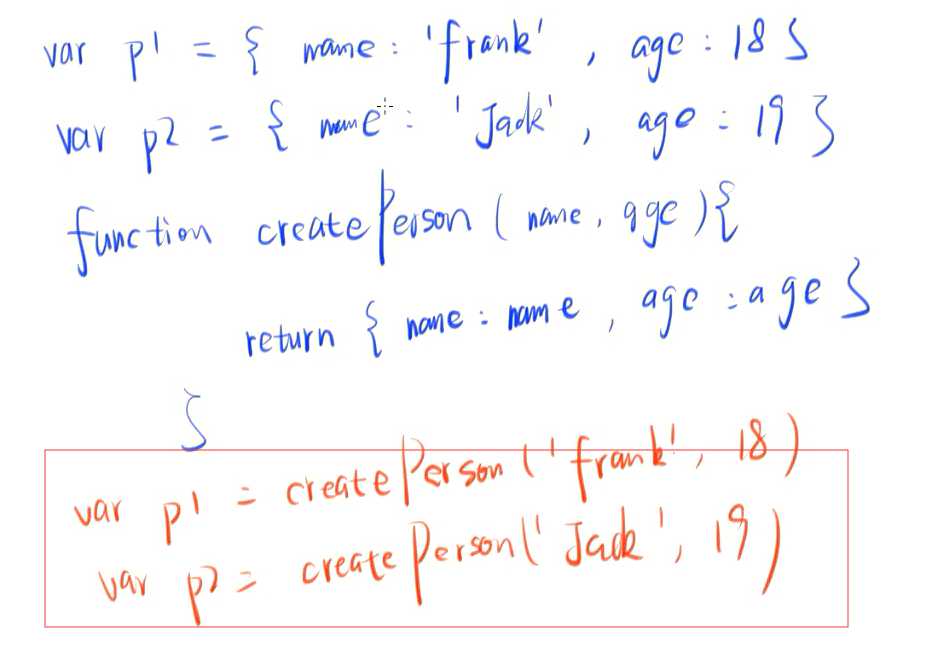 var p1 = { name : 'frank' , age : 18 }
var p2 = { name : 'Jack' , age : 19 }
function createPerson ( name , age ) {
return { name : name , age : age }
}
var p1 = createPerson ( 'frank' , 18 )
var p2 = createPerson ( 'Jack' , 19 )